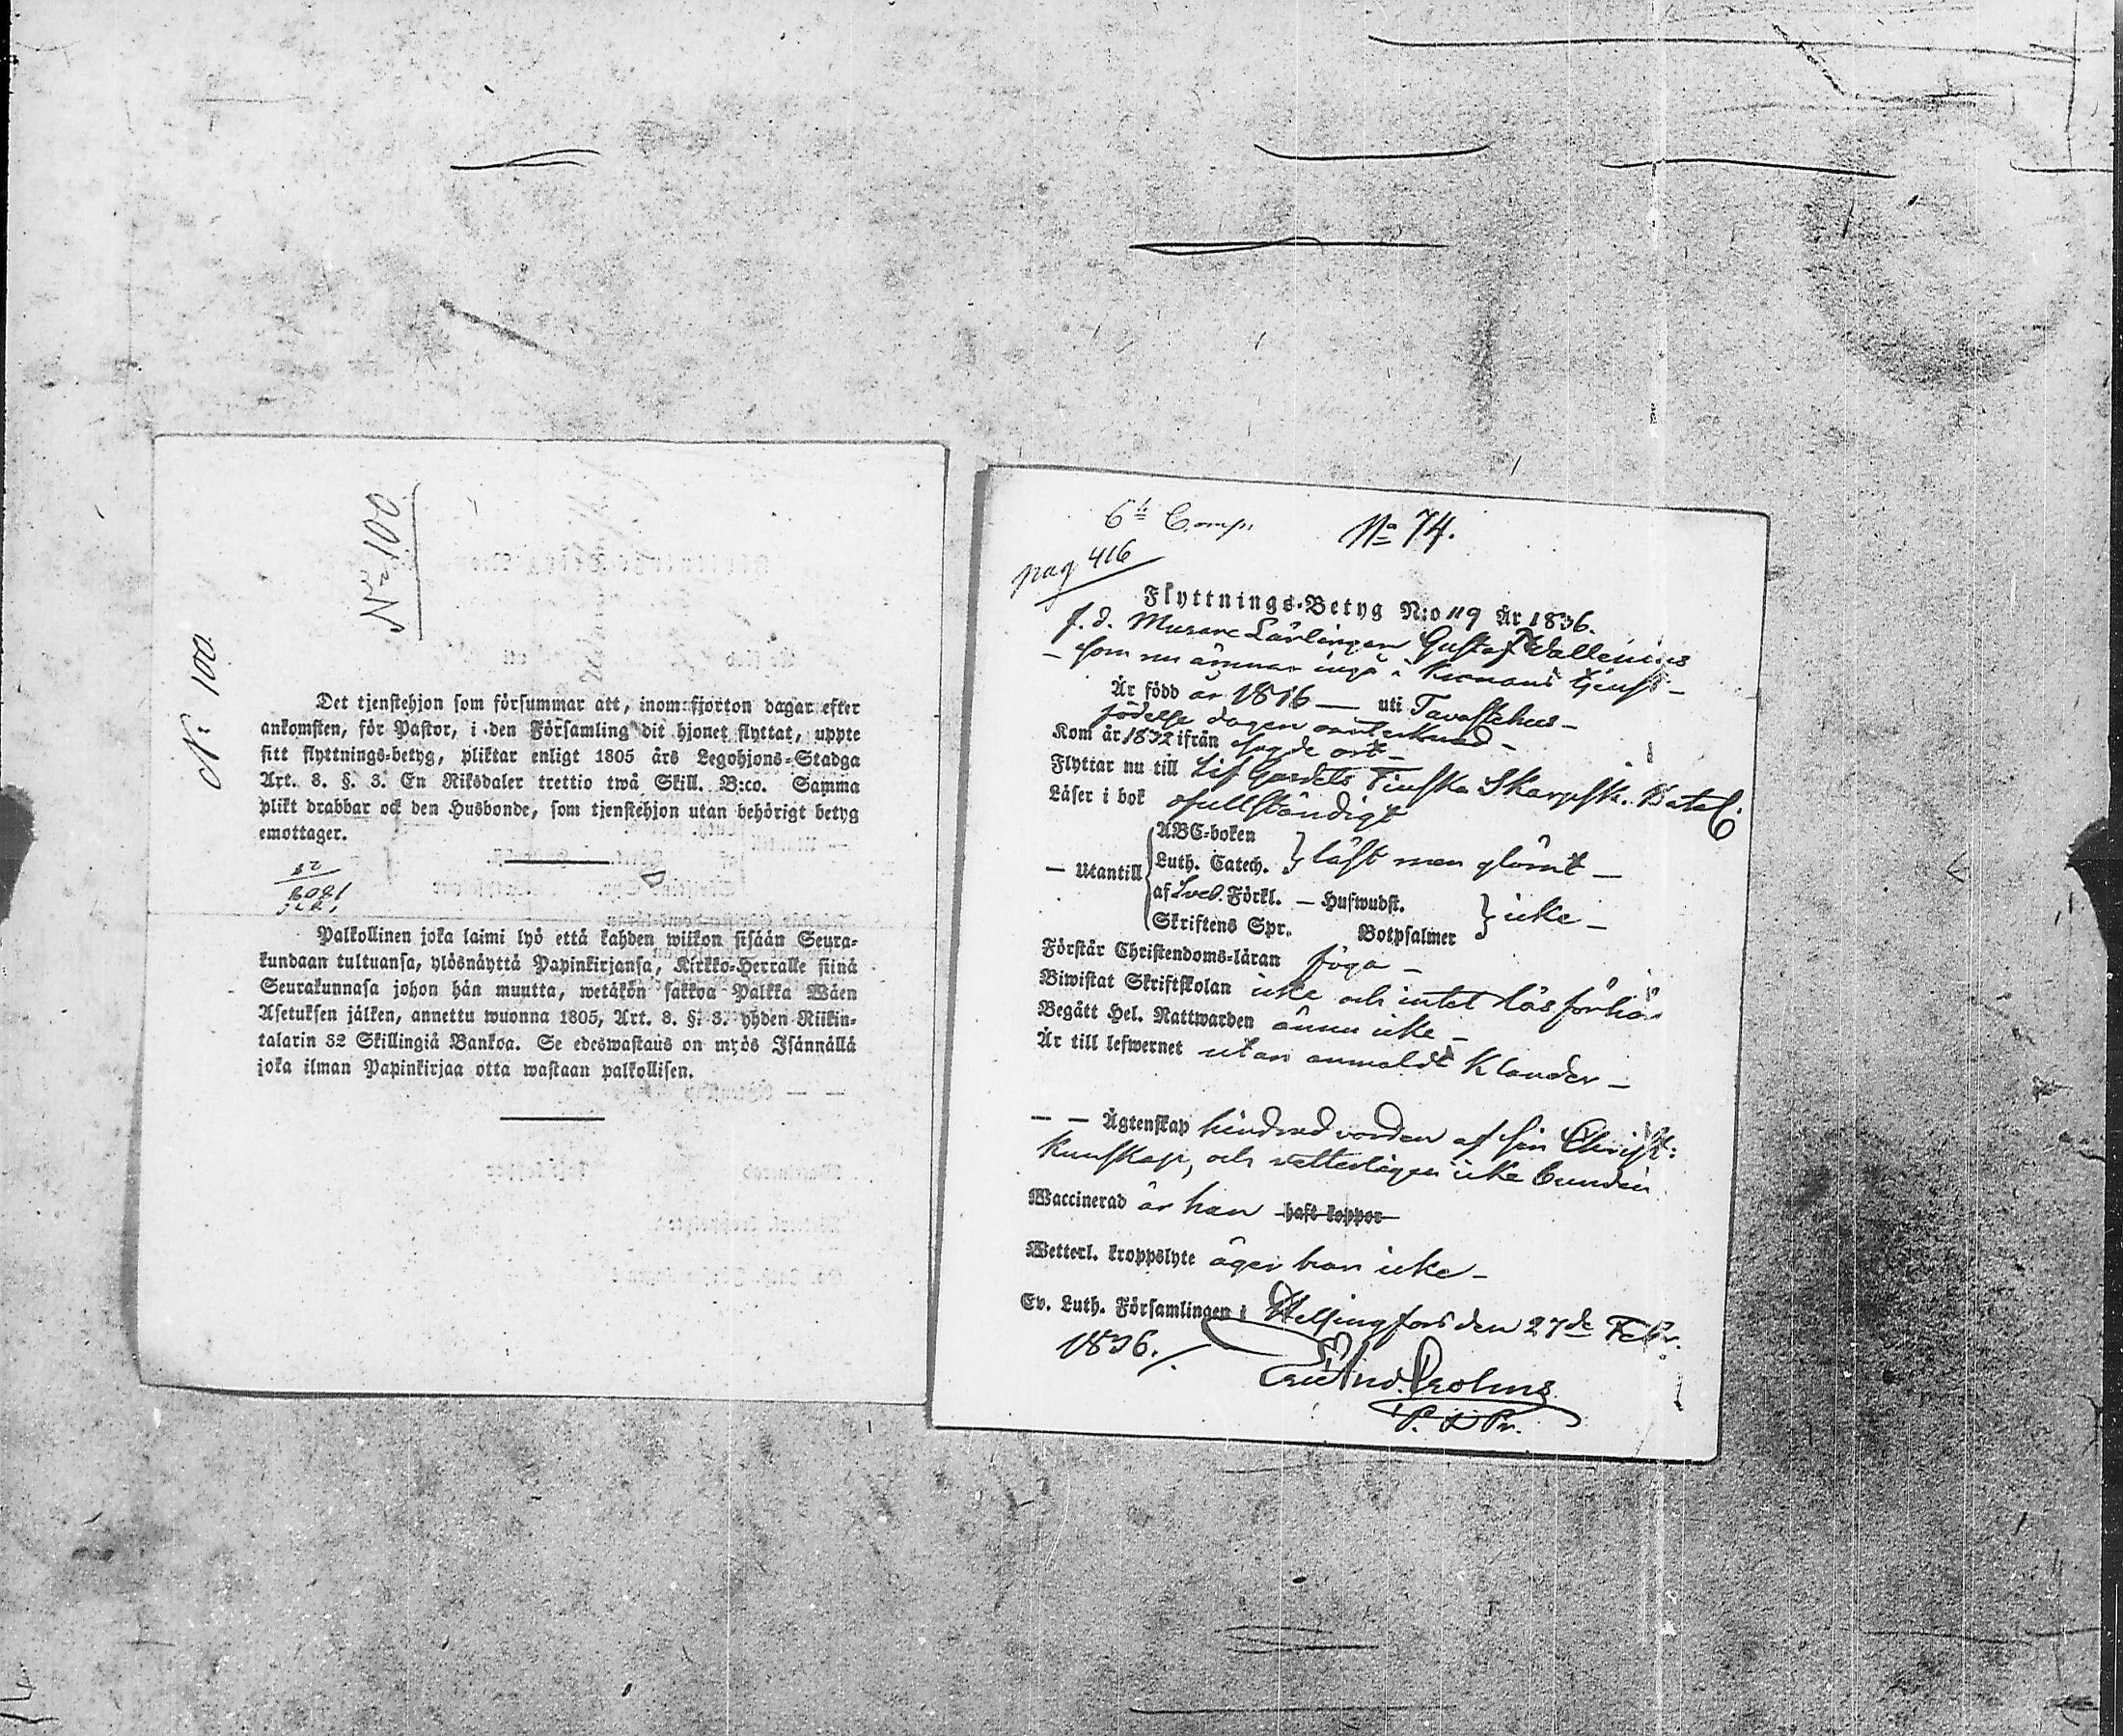 N:o 100
N:o 100.
Det tjenstehjon som försummar att, inom fjorton dagar efter
ankomsten, för Pastor, i den Församling dit hjonet flyttat, uppte
sitt flyttnings-betyg, pliktar enligt 1805 års Legohjons-Stadga
Art. 8. §. 3. En Riksdaler trettio twå Skill. B:co. Samma
plikt drabbar ock den Husbonde, som tjenstehjon utan behörigt betyg
emottager.
Palkollinen joka laimi lyö että kahden wiikon sisään Seura-
kundaan tultuansa, ylösnäyttä Papinkirjansa, Kirkko-Herralle siinä
Seurakunnasa johon hän muutta, wetäkön sakkoa Palkka Wäen
Asetuksen jälken, annettu wuonna 1805, Art. 8. §. 3. yhden Riikin-
talarin 32 Skillingiä Bankoa. Se edeswastaus on myös Isännällä
joka ilman Papinkirjaa otta wastaan palkollisen.
6te Comp. No 74.
pag 416
Flyttnings-Betyg N:o 119 År 1836.
f.d. Murare Lärlingen Gustaf Wallenius
– som nu ämnar ingå i Kronans tjenst –
Är född år 1816 — uti Tavastehus –
födelse dagen oantecknad –
Kom år 1832 ifrån sagde ort –
Flyttar nu till Lif Gardets Finska Skarpsk. Batal.
Läser i bok ofullständigt
ABC-boken
Luth. Catech. } läst men glömt –
– Utantill
af Sveb. Förkl. – Huswudst.
Skriftens Spr. Botpsalmer } icke –
Förstår Christendoms-läran föga –
Biwistat Skriftskolan icke och intet läsförhör
Begått Hel. Nattwarden ännu icke –
Är till lefwernet utan anmäldt klander –
— — Ägtenskap hindrad vorden af sin Christ:
kunskap, och vetterligen icke bunden
Waccinerad är han haft koppor
Wetterl. kroppslyte äger han icke –
Ev. Luth. Församlingen i Helsingfors den 27de Febr.
1836.